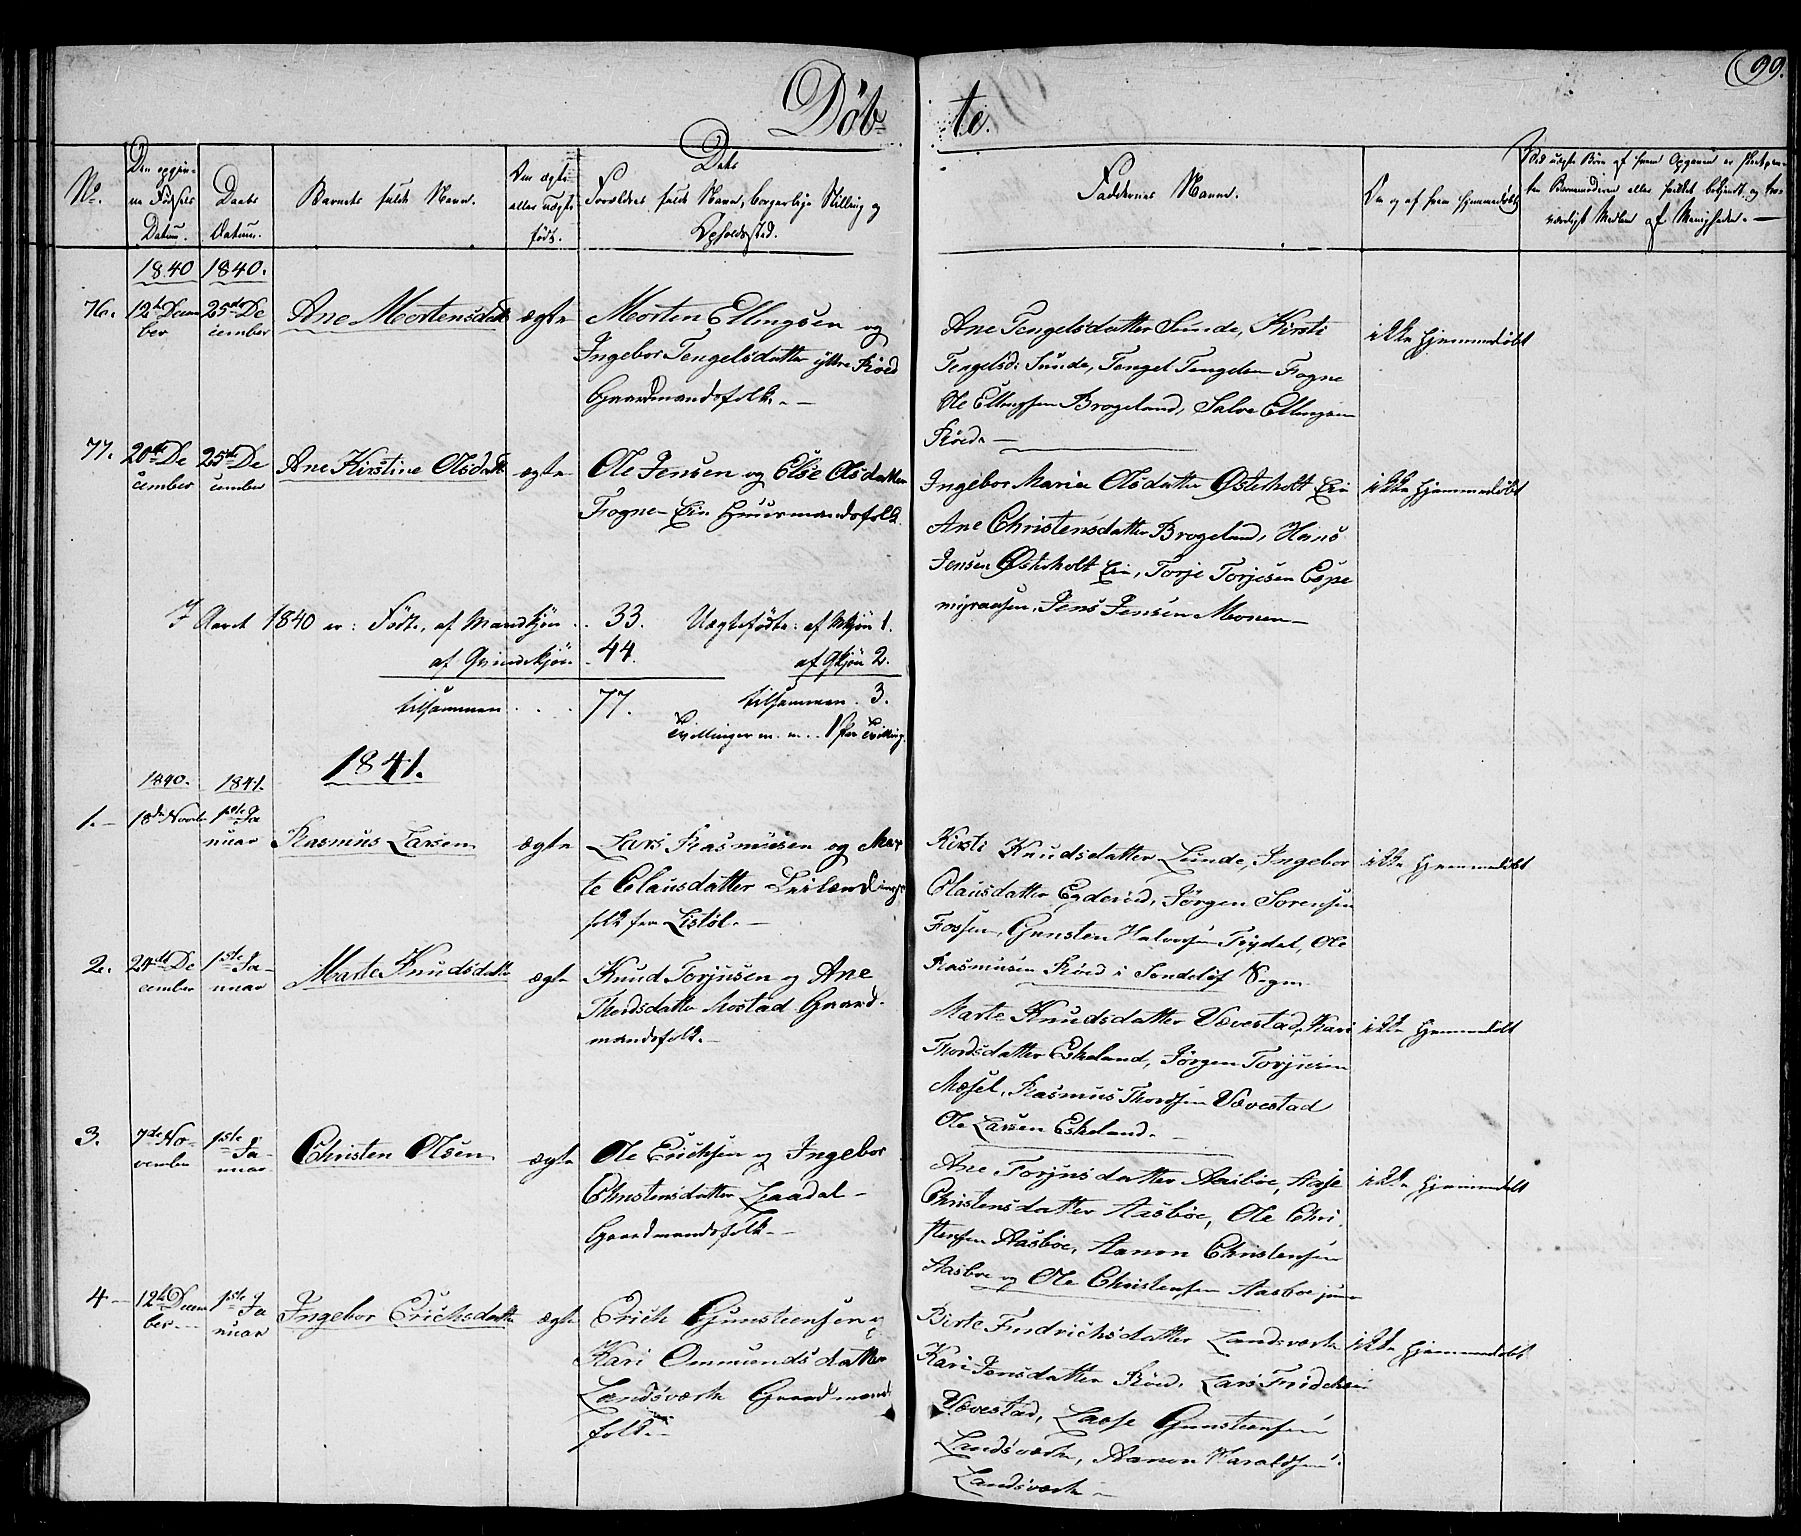 99.
Døb- te.
No.
Den opgivne Fødsels Datum.
Daabs Datum.
Barnets fulde Navn.
Om ægte eller uægte født.
Dets Forældres fulde Navn, borgerlige Stilling og Opholdssted.
Faddernes Navne.
Om og af hvem hjemmedøbt
1840 1840.
76. 12te Decem 25de De Ane Mortensdatt. ægte Morten Ellingsen og
ber cember Ingebor Tengelsdatter ytre Røed
Gaardmandsfolk. —
Ane Tengelsdatter Sunde, Kirsti
Tengelsd: Sunde, Tengel Tengelsen Fogne
Ole Ellingsen Brogeland, Salve Ellingsen
Røed. —
ikke hjemmedøbt
77. 20de De 25de De Ane Kirstine Olsdatt. ægte Ole Jensen og Else Olsdatter
cember cember Fogne-Eie Huusmandsfolk.
Ingebor Marie Olsdatter Østerholt Eie
Ane Christensdatter Brogeland, Hans
Jensen Østerholt Eie, Torje Torjesen Espe
myraasen, Jens Jensen Monen —
ikke hjemmedøbt
I Aaret 1840 er: Fødte, af Mandkjøn . . 33. Uægtefødte: af Mkjøn 1.
af Qvindekjøn . 44. af Qkjøn 2.
tilsammen . . . 77. tilsammen . 3.
Tvillinger 1 Par Tvilling.
1841.
1840. 1841.
1. — 18de Novbr 1ste Ja Rasmus Larsen ægte Lars Rasmusen og Mar
nuar te Clausdatter Leilændings
folk fra Listøl. —
Kirsti Knudsdatter Lunde, Ingebor
Clausdatter Egderød, Jørgen Sørensen
Fossen, Gunsten Halvorsen Føydal, Ole
Rasmusen Røed i Søndeløf Sogn
ikke hjemmedøbt
2. 24de De 1ste Ja- Marte Knudsdatter ægte Knud Torjusen og Ane
cember nuar Thordsdatter Mostad Gaard-
mandsfolk. —
Marte Knudsdatter Vævestad, Kari
Thordsdatter Eskeland, Jørgen Torjusen
Mæsel, Rasmus Thordsen Vævestad
Ole Larsen Eskeland. —
ikke hjemmedøbt
3. 7de No- 1ste Ja- Christen Olsen ægte Ole Erichsen og Ingebor
vember nuar Christensdatter Laadal —
Gaardmandsfolk. —
Ane Torjusdatter Aasbøe, Aase
Christensdatter Aasbøe, Ole Chri-
stensen Aasbøe, Aanon Christensen
Aasbøe og Ole Christensen Aasbøe jun
ikke hjemmedøbt
4 — 12te Decem 1ste Ja Ingebor Erichsdatter ægte Erich Gunstensen og
ber — nuar Kari Ommundsdatter
Landsværk Gaardmands
folk. —
Birte Fredrichsdatter Landsværk
Kari Jensdatter Røed, Lars Fridrichsen
Vævestad, Lasse Gunstensen
Landsværk, Aanon Haraldsen
Landsværk —
ikke hjemmedøbt